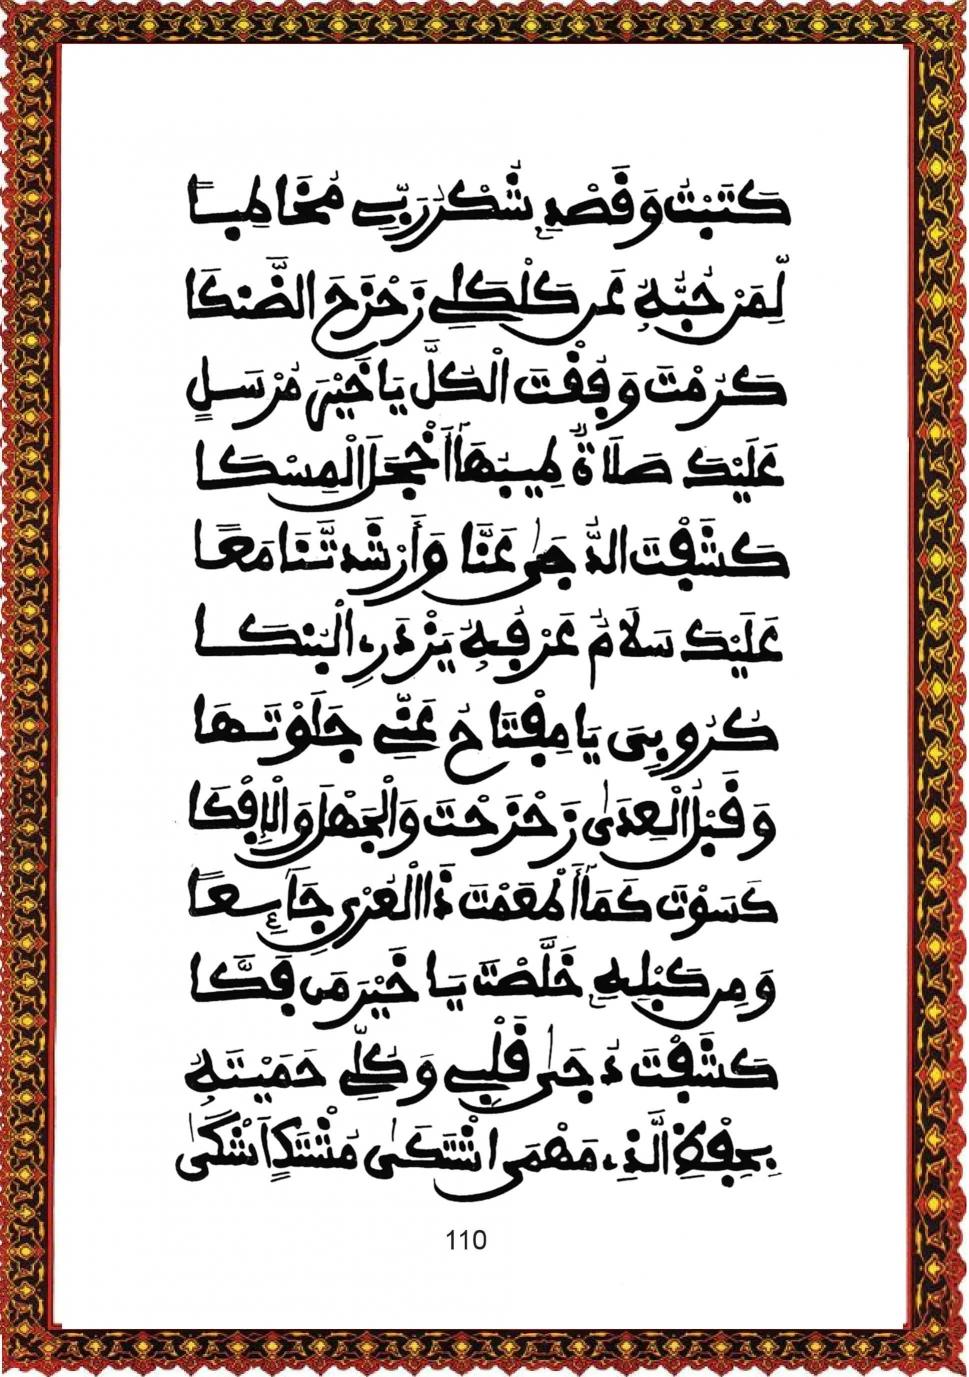 كَتَبْتُ وَقَصْدِے شُكْرُ رَبِّے مُخَاطِباً
لِّمَنْ حُبُّهُۥ عَن كَلْكَلِے زَحْزَحَ الضَّنْكَا
كَرُمْتَ وَفُقْتَ الْكُلَّ يَا خَيْرَ مُرْسَلٍ
عَلَيْكَ صَلَاةٌ طِيبُهَا أَخْجَلَ الْمِسْكَا
كَشَفْتَ الدُّجَىٰ عَنَّا وَأَرْشَدتَّنَا مَعاً
عَلَيْكَ سَلَامٌ عَرْفُهُۥ يَزْدَرِے الْبُنْكَا
كُرُوبِىَ يَا مِفْتَاحُ عَنِّے جَلَوْتَهَا
وَقَبْلُ الْعِدَىٰ زَحْزَحْتَ وَالْجَهْلَ وَالْإِفْكَا
كَسَوْتَ كَمَا أَطْعَمْتَ ذَا الْعُرْىِ جَائِعاً
وَمِن كَبْلِهِۦ خَلَّصْتَ يَا خَيْرَ مَن فَكَّا
كَشَفْتَ دُجَىٰ قَلْبِے وَكُلِّے حَمَيْتَهُۥ
بِحِفْظِ الَّذِے مَهْمَى اشْتَكَىٰ مُشْتَكٍ أَشْكَىٰ
110